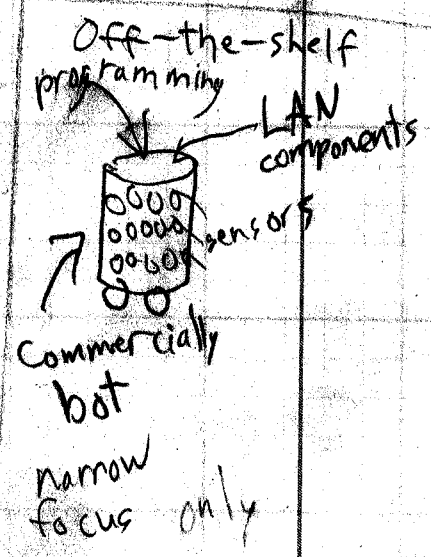 Off-the-shelf
programming
LAN
components
sensors
Commercially
bot
narrow
focus only